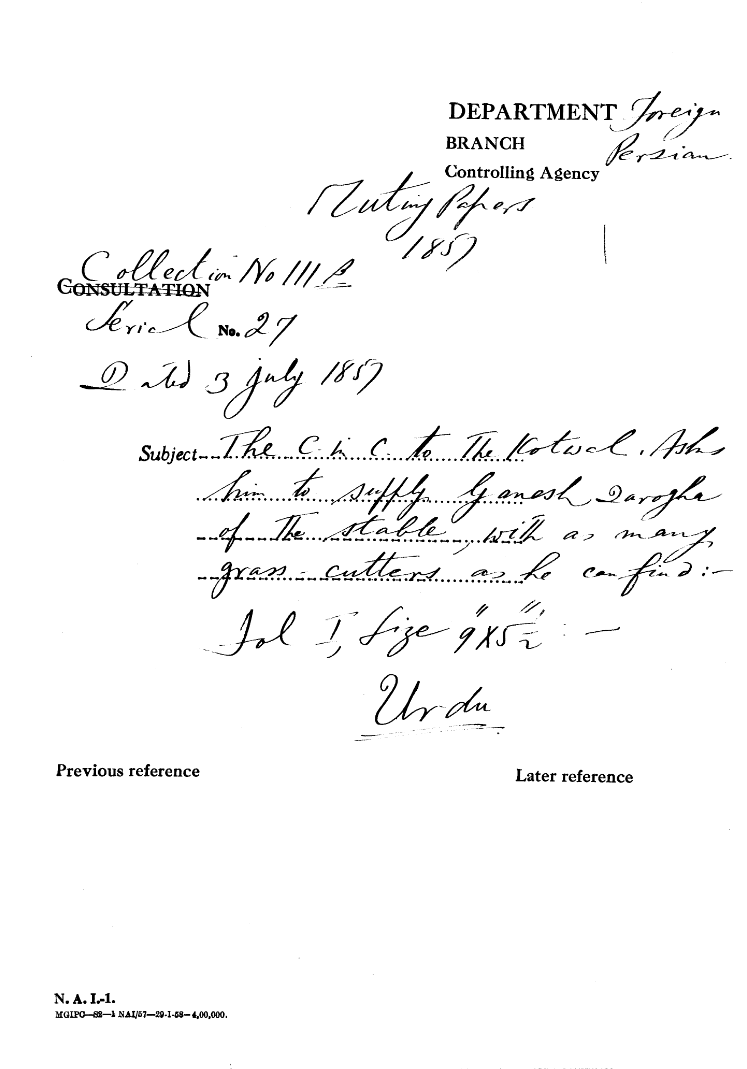 DEPARTMENT Foreign
BRANCH Persian
Controlling Agency
Mutiny Papers
1857
Collection No III B
CONSULTATION
Serial No. 27
Dated 3 July 1857
Subject The C in C to The Kotwal. Asks
him to supply Ganesh Darogha
of The stable, with as many
grass-cutters as he can find:-
Fol I, Size 9"X5½" : —
Urdu
Previous reference Later reference
N. A. I.-1.
MGIPC—S2—1 NAI/57—29-1-58—4,00,000.